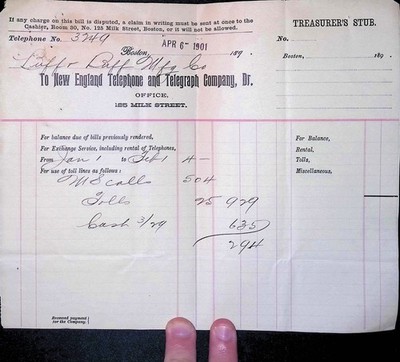 If any charge on this bill is disputed, a claim in writing must be sent at once to the
Cashier, Room 30, No. 125 Milk Street, Boston, or it will not be allowed.
Telephone No. 3249
Boston, APR 6 1901 189 .
Luff & Luff Mfg Co
To New England Telephone and Telegraph Company, Dr.
OFFICE,
125 MILK STREET.
For balance due of bills previously rendered,
For Exchange Service, including rental of Telephones,
From Jan 1 to Feb 1 4 —
For use of toll lines as follows:
M S calls 504
Tolls 25 929
Cash 3/29 635
294
Received payment
for the Company,
TREASURER'S STUB.
No.
Boston, 189 .
For Balance,
Rental,
Tolls,
Miscellaneous,